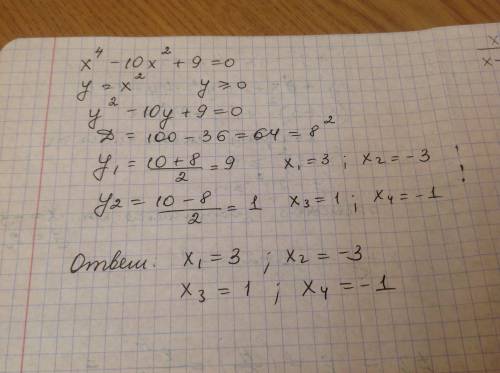 x⁴ - 10x² + 9 = 0
y = x² y ≥ 0
y² - 10y + 9 = 0
D = 100 - 36 = 64 = 8²
y₁ = (10 + 8)/2 = 9 x₁ = 3 ; x₂ = -3
y₂ = (10 - 8)/2 = 1 x₃ = 1 ; x₄ = -1 !
Ответ. x₁ = 3 ; x₂ = -3
x₃ = 1 ; x₄ = -1